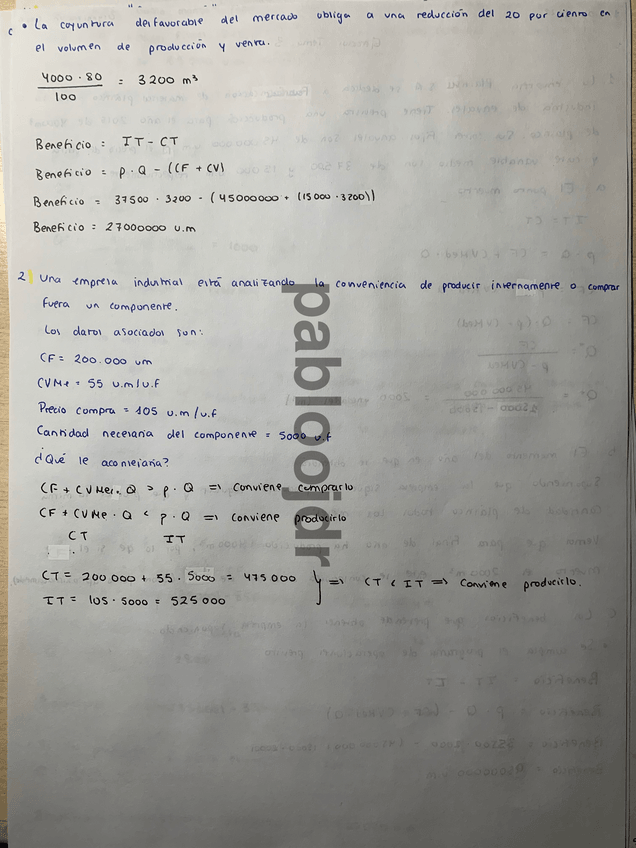 c • La coyuntura desfavorable del mercado obliga a una reducción del 20 por ciento en
el volumen de producción y venta.
4000 · 80 / 100 = 3200 m³
Beneficio = IT - CT
Beneficio = p · Q - (CF + CV)
Beneficio = 37500 · 3200 - (45000000 + (15000 · 3200))
Beneficio = 27000000 u.m
2 Una empresa industrial está analizando la conveniencia de producir internamente o comprar
fuera un componente.
Los datos asociados son:
CF = 200.000 um
CVMe = 55 u.m/u.f
Precio compra = 105 u.m/u.f
Cantidad necesaria del componente = 5000 u.f
¿Qué le aconsejaría?
CF + CVMe · Q > p · Q => Conviene comprarlo
CF + CVMe · Q < p · Q => Conviene producirlo
CT IT
CT = 200 000 + 55 · 5000 = 475 000 } => CT < IT => Conviene producirlo.
IT = 105 · 5000 = 525 000
pabloojdr